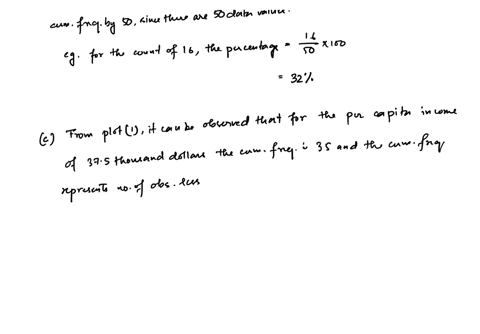 cum. freq. by 50, since there are 50 data values.
eg. for the count of 16, the percentage = 16/50 × 100
= 32%
(c) From plot (1), it can be observed that for the per capita income
of 37.5 thousand dollars the cum. freq. is 35 and the cum. freq
represents no. of obs. less